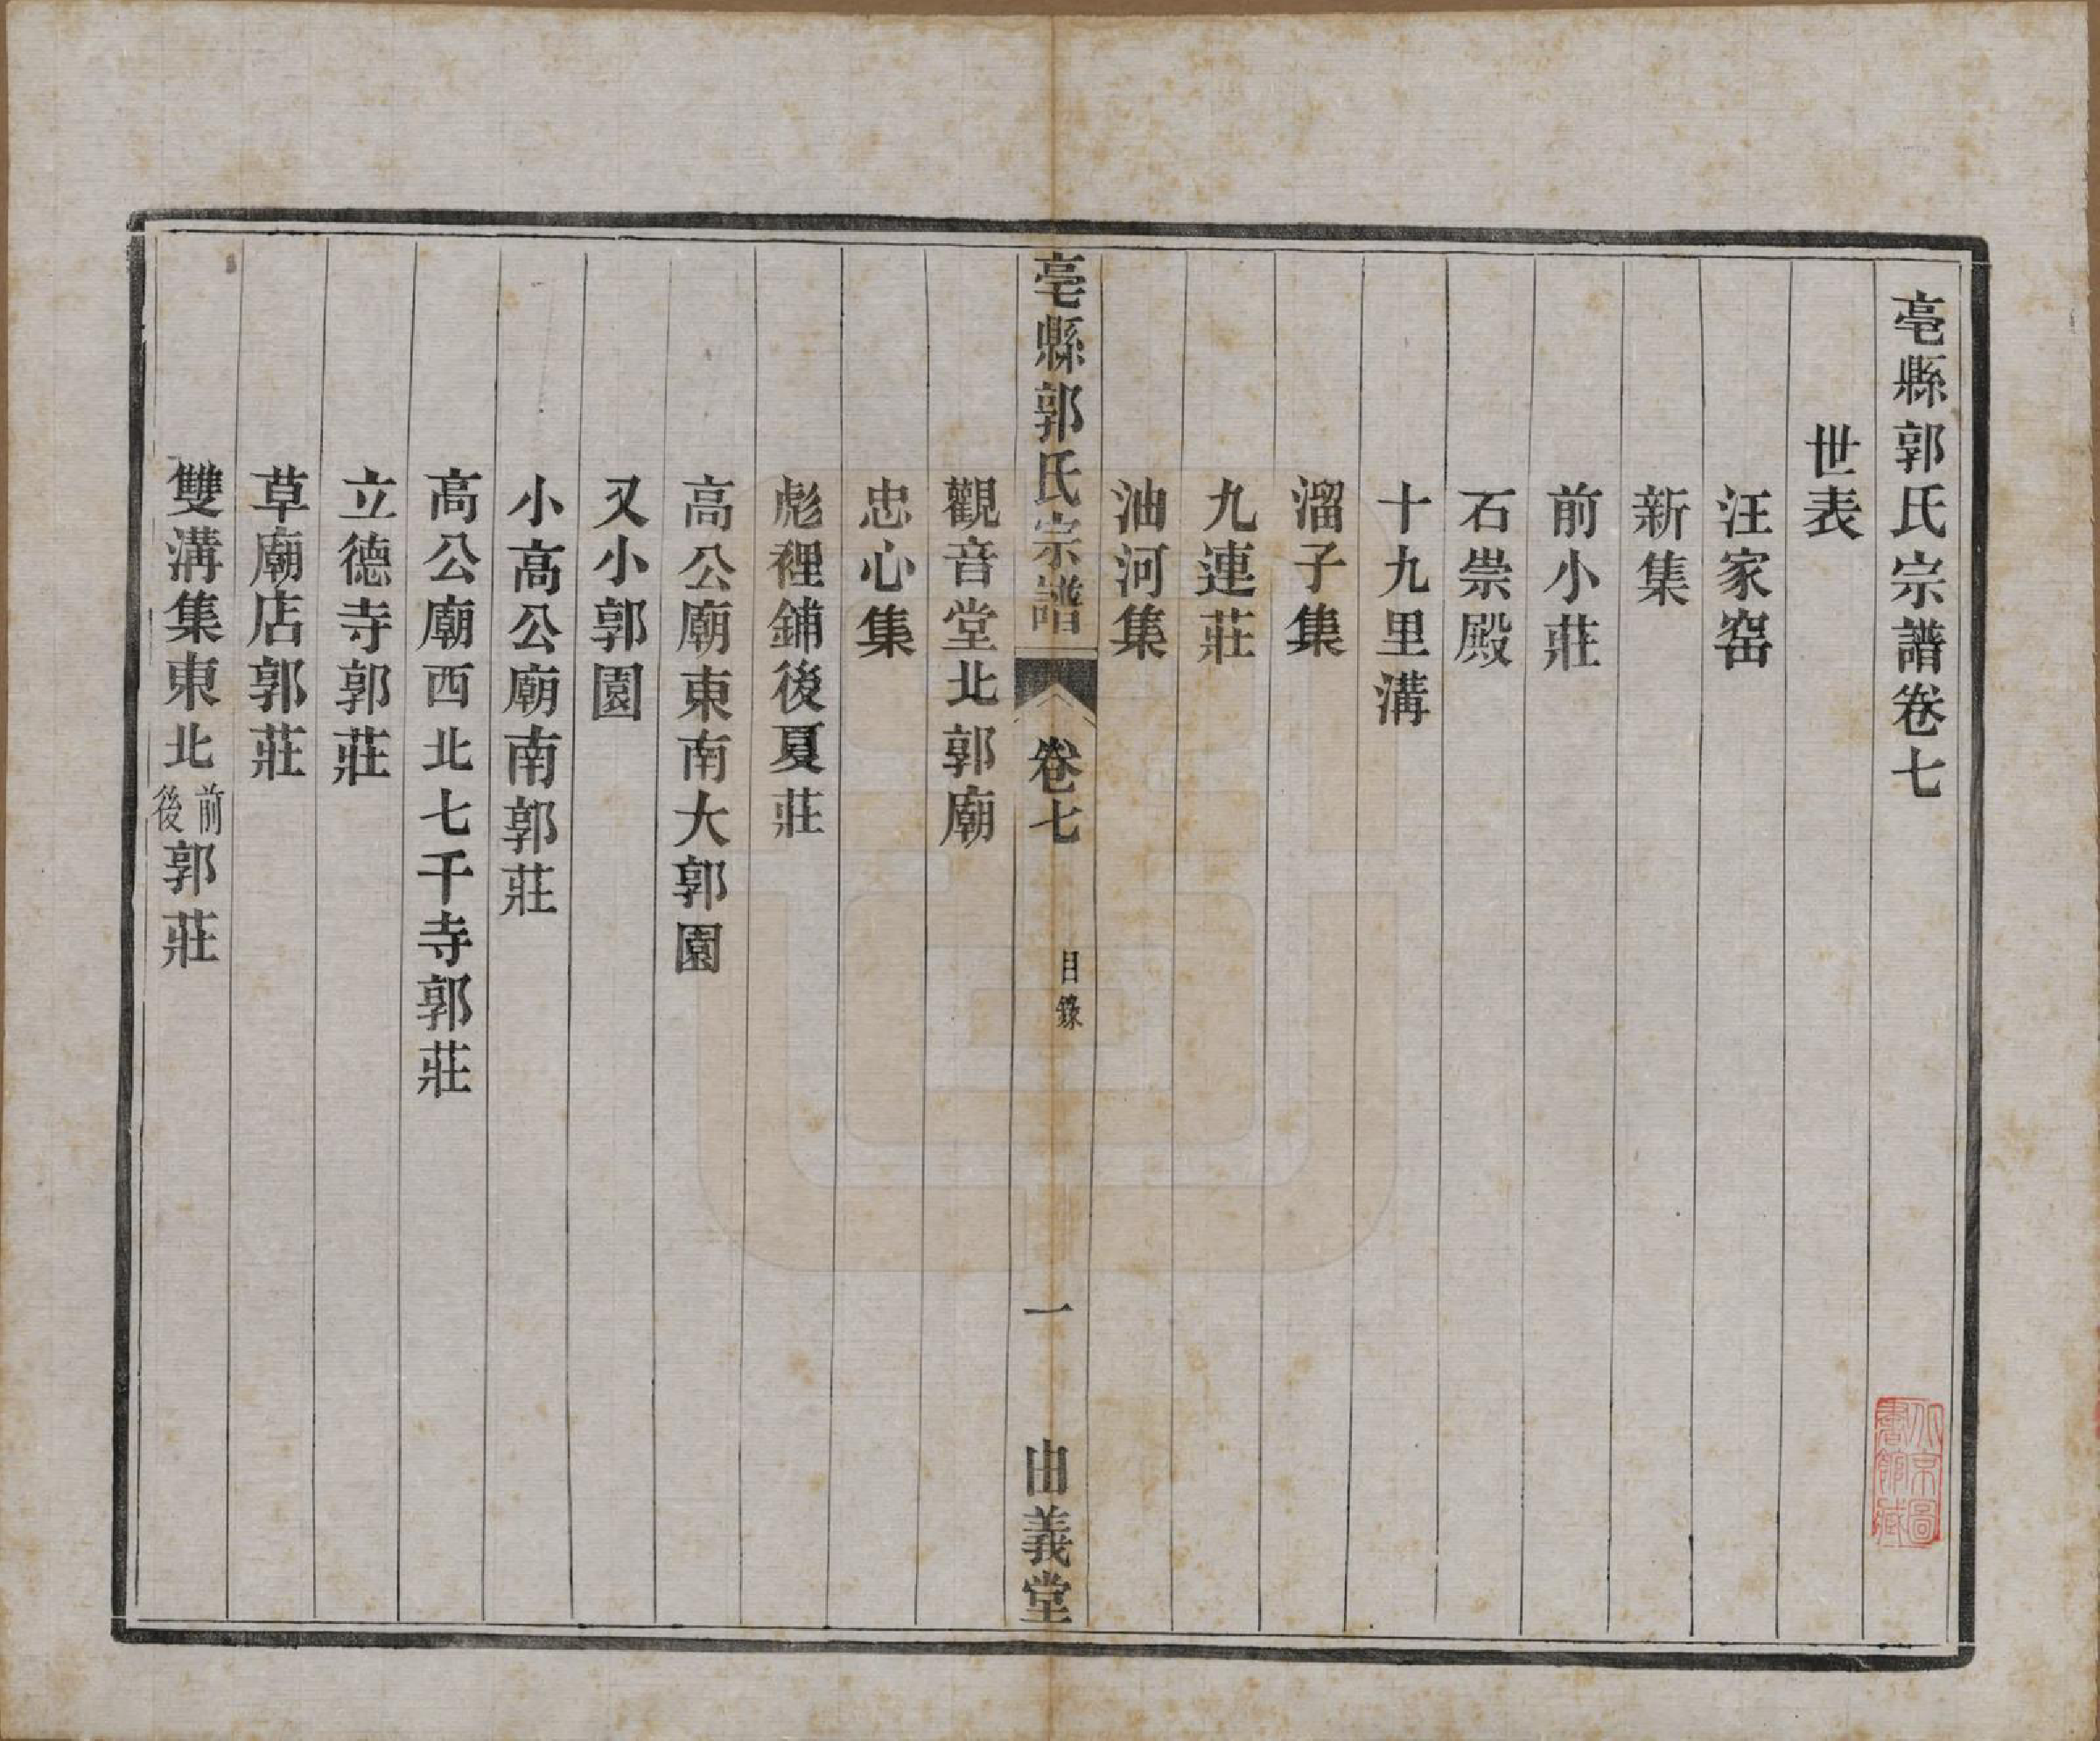 亳縣郭氏宗譜卷七
世表
汪家窑
新集
前小莊
石崇殿
十九里溝
溜子集
九連莊
油河集
亳縣郭氏宗譜 卷七 目錄 一 由義堂
觀音堂北郭廟
忠心集
彪裡鋪後夏莊
高公廟東南大郭園
又小郭園
小高公廟南郭莊
高公廟西北七千寺郭莊
立德寺郭莊
草廟店郭莊
雙溝集東北前後郭莊
北京圖書館藏